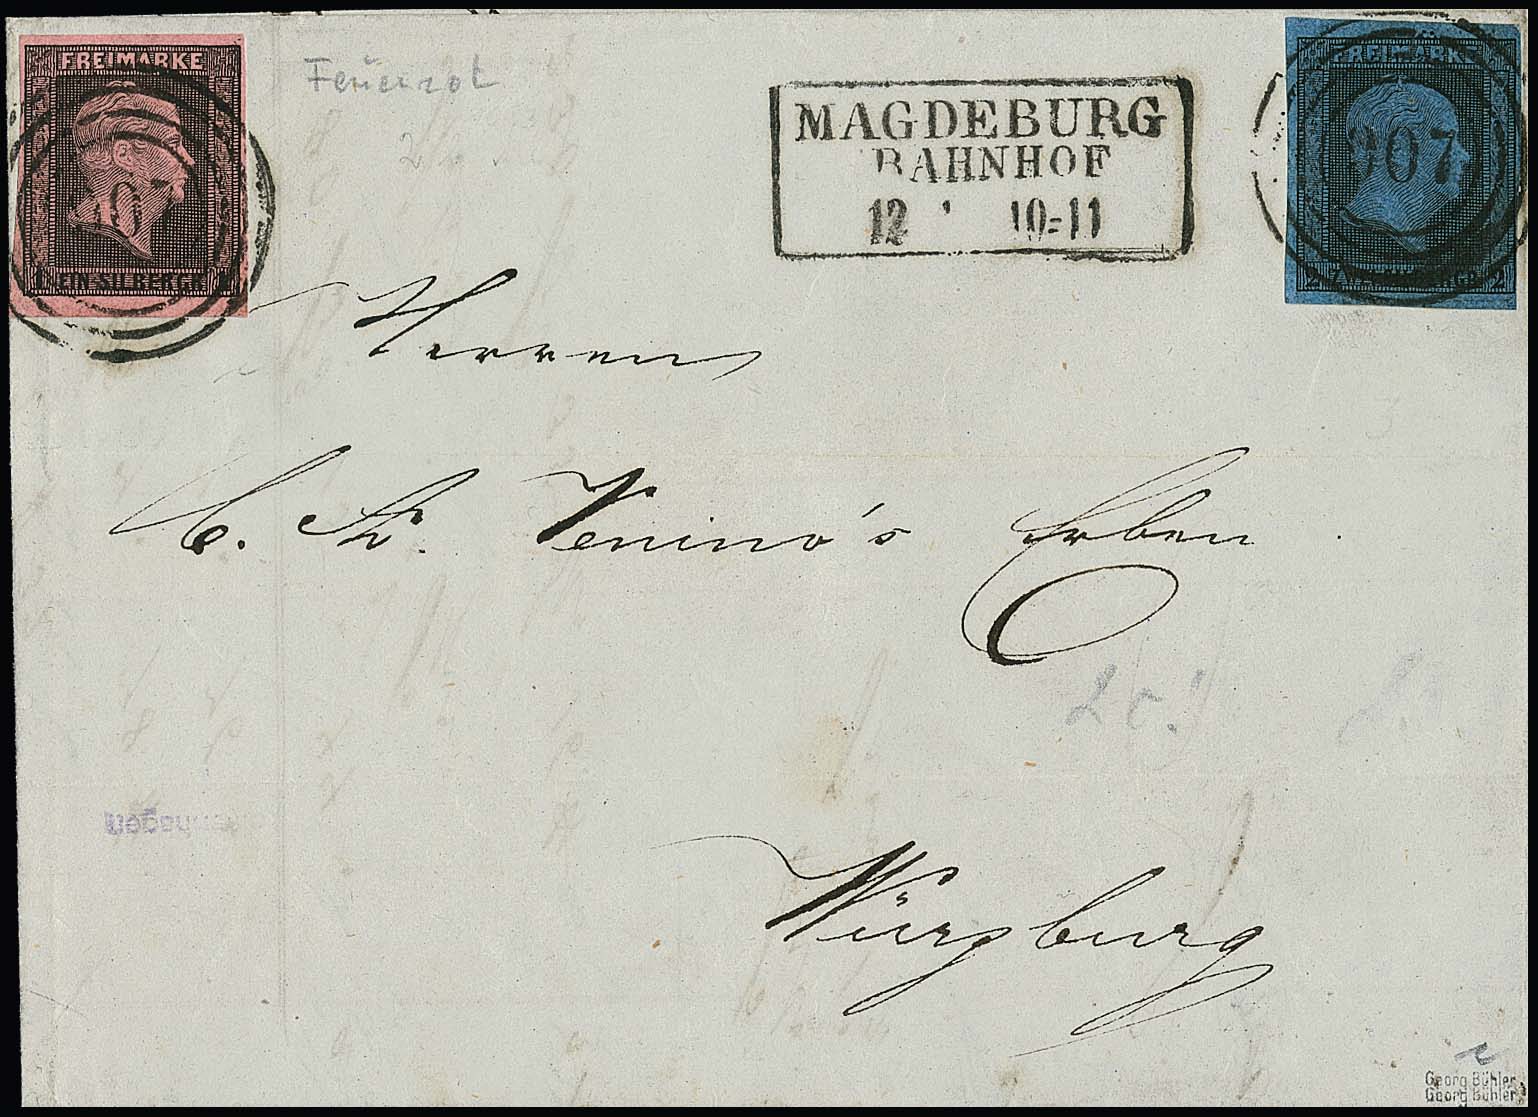 FREIMARKE
907
1 EIN SILBERGR. 1
Feuerrot
MAGDEBURG
BAHNHOF
12 10-11
FREIMARKE
907
2 2
Herren
C. Venino's Erben
Würzburg
Georg Bühler
Georg Bühler